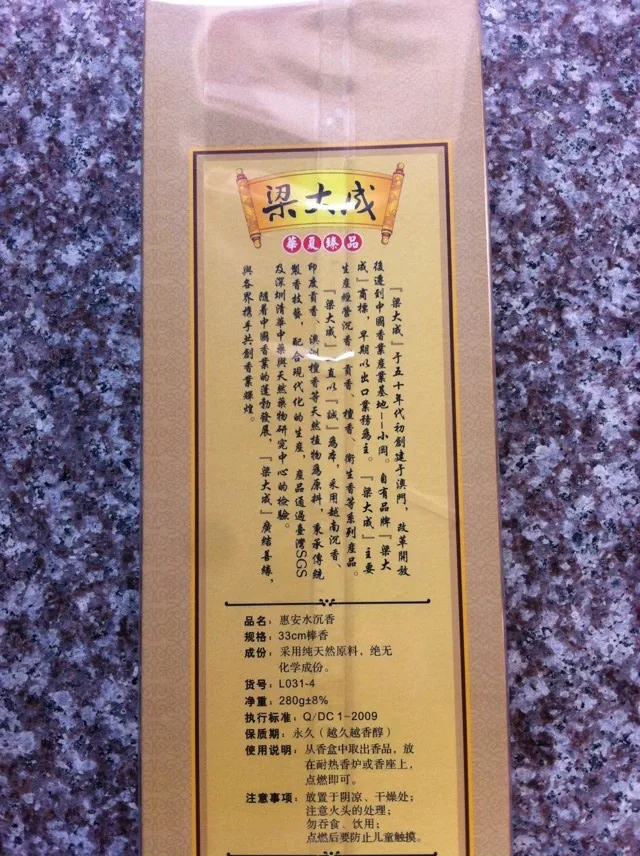 梁大成
華夏臻品
『梁大成』于五十年代初創建于澳門，改革開放
後遷到中國香業產業基地——小岡。自有品牌『梁大
成』商標，早期以出口業務爲主。『梁大成』主要
生産經營沉香、貢香、檀香、衛生香等系列産品。
『梁大成』一直以『誠』爲本，采用越南沉香、
印度貢香、澳洲檀香等天然植物爲原料，秉承傳統
製香技藝，配合現代化的生産，産品通過臺灣SGS
及深圳清華中藥與天然藥物研究中心的檢驗。
隨着中國香業的蓬勃發展，『梁大成』廣結善緣，
與各界携手共創香業輝煌。
品名：惠安水沉香
规格：33cm棒香
成份：采用纯天然原料，绝无
化学成份。
货号：L031-4
净重：280g±8%
执行标准：Q/DC 1-2009
保质期：永久（越久越香醇）
使用说明：从香盒中取出香品，放
在耐热香炉或香座上，
点燃即可。
注意事项：放置于阴凉、干燥处；
注意火头的处理；
勿吞食、饮用；
点燃后要防止儿童触摸。